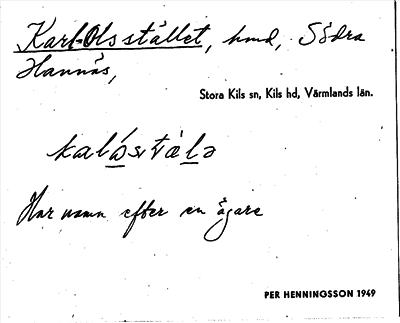 Karl-Olsstället, hmd, Södra
Hannäs,
Stora Kils sn, Kils hd, Värmlands län.
kalósvtälə
Har namn efter en ägare
PER HENNINGSSON 1949